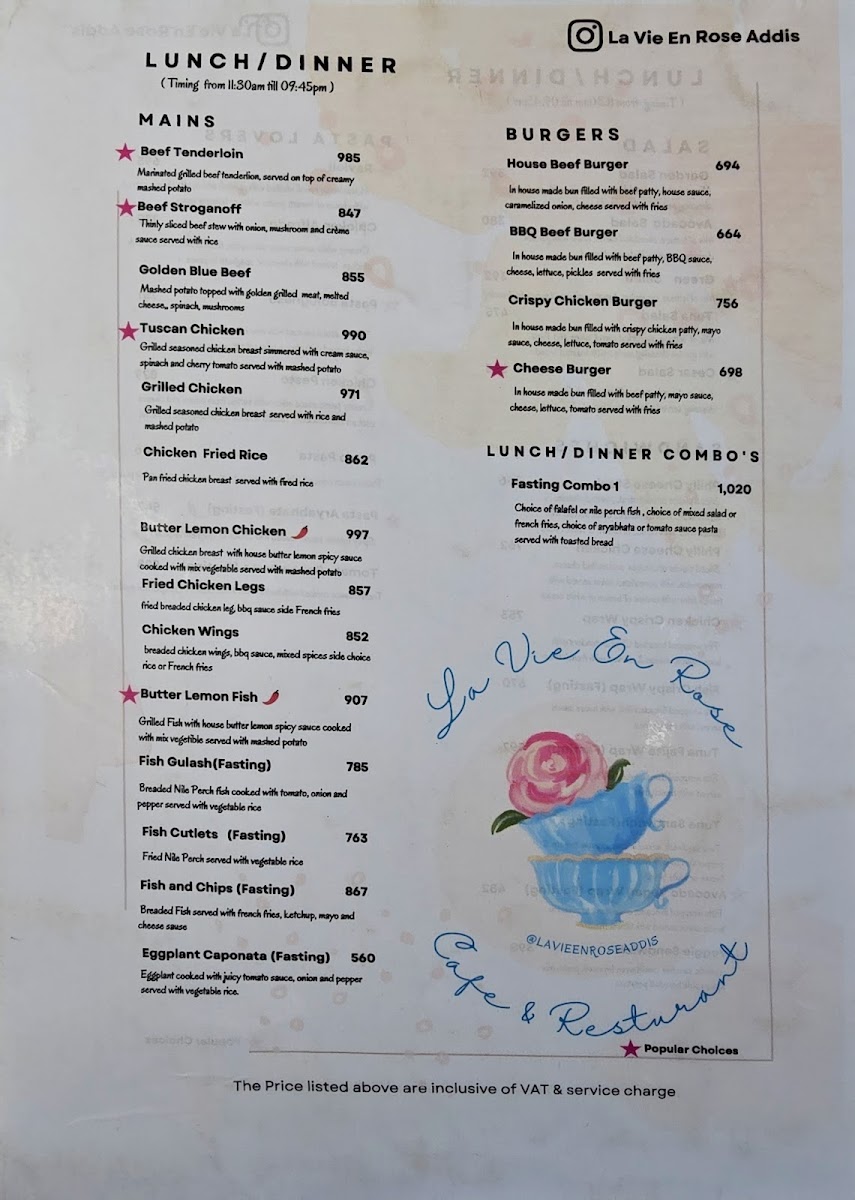 La Vie En Rose Addis
LUNCH/DINNER
( Timing from 11:30am till 09:45pm )
MAINS
Beef Tenderloin 985
Marinated grilled beef tenderlion, served on top of creamy
mashed potato
Beef Stroganoff 847
Thinly sliced beef stew with onion, mushroom and crème
sauce served with rice
Golden Blue Beef 855
Mashed potato topped with golden grilled meat, melted
cheese,, spinach, mushrooms
Tuscan Chicken 990
Grilled seasoned chicken breast simmered with cream sauce,
spinach and cherry tomato served with mashed potato
Grilled Chicken 971
Grilled seasoned chicken breast served with rice and
mashed potato
Chicken Fried Rice 862
Pan fried chicken breast served with fired rice
Butter Lemon Chicken 997
Grilled chicken breast with house butter lemon spicy sauce
cooked with mix vegetable served with mashed potato
Fried Chicken Legs 857
fried breaded chicken leg, bbq sauce side French fries
Chicken Wings 852
breaded chicken wings, bbq sauce, mixed spices side choice
rice or French fries
Butter Lemon Fish 907
Grilled Fish with house butter lemon spicy sauce cooked
with mix vegetible served with mashed potato
Fish Gulash(Fasting) 785
Breaded Nile Perch fish cooked with tomato, onion and
pepper served with vegetable rice
Fish Cutlets (Fasting) 763
Fried Nile Perch served with vegetable rice
Fish and Chips (Fasting) 867
Breaded Fish served with french fries, ketchup, mayo and
cheese sause
Eggplant Caponata (Fasting) 560
Eggplant cooked with juicy tomato sauce, onion and pepper
served with vegetable rice.
BURGERS
House Beef Burger 694
In house made bun filled with beef patty, house sauce,
caramelized onion, cheese served with fries
BBQ Beef Burger 664
In house made bun filled with beef patty, BBQ sauce,
cheese, lettuce, pickles served with fries
Crispy Chicken Burger 756
In house made bun filled with crispy chicken patty, mayo
sauce, cheese, lettuce, tomato served with fries
Cheese Burger 698
In house made bun filled with beef patty, mayo sauce,
cheese, lettuce, tomato served with fries
LUNCH/DINNER COMBO'S
Fasting Combo 1 1,020
Choice of falafel or nile perch fish , choice of mixed salad or
french fries, choice of aryabhata or tomato sauce pasta
served with toasted bread
La Vie En Rose
@LAVIEENROSEADDIS
Cafe & Resturant
Popular Choices
The Price listed above are inclusive of VAT & service charge